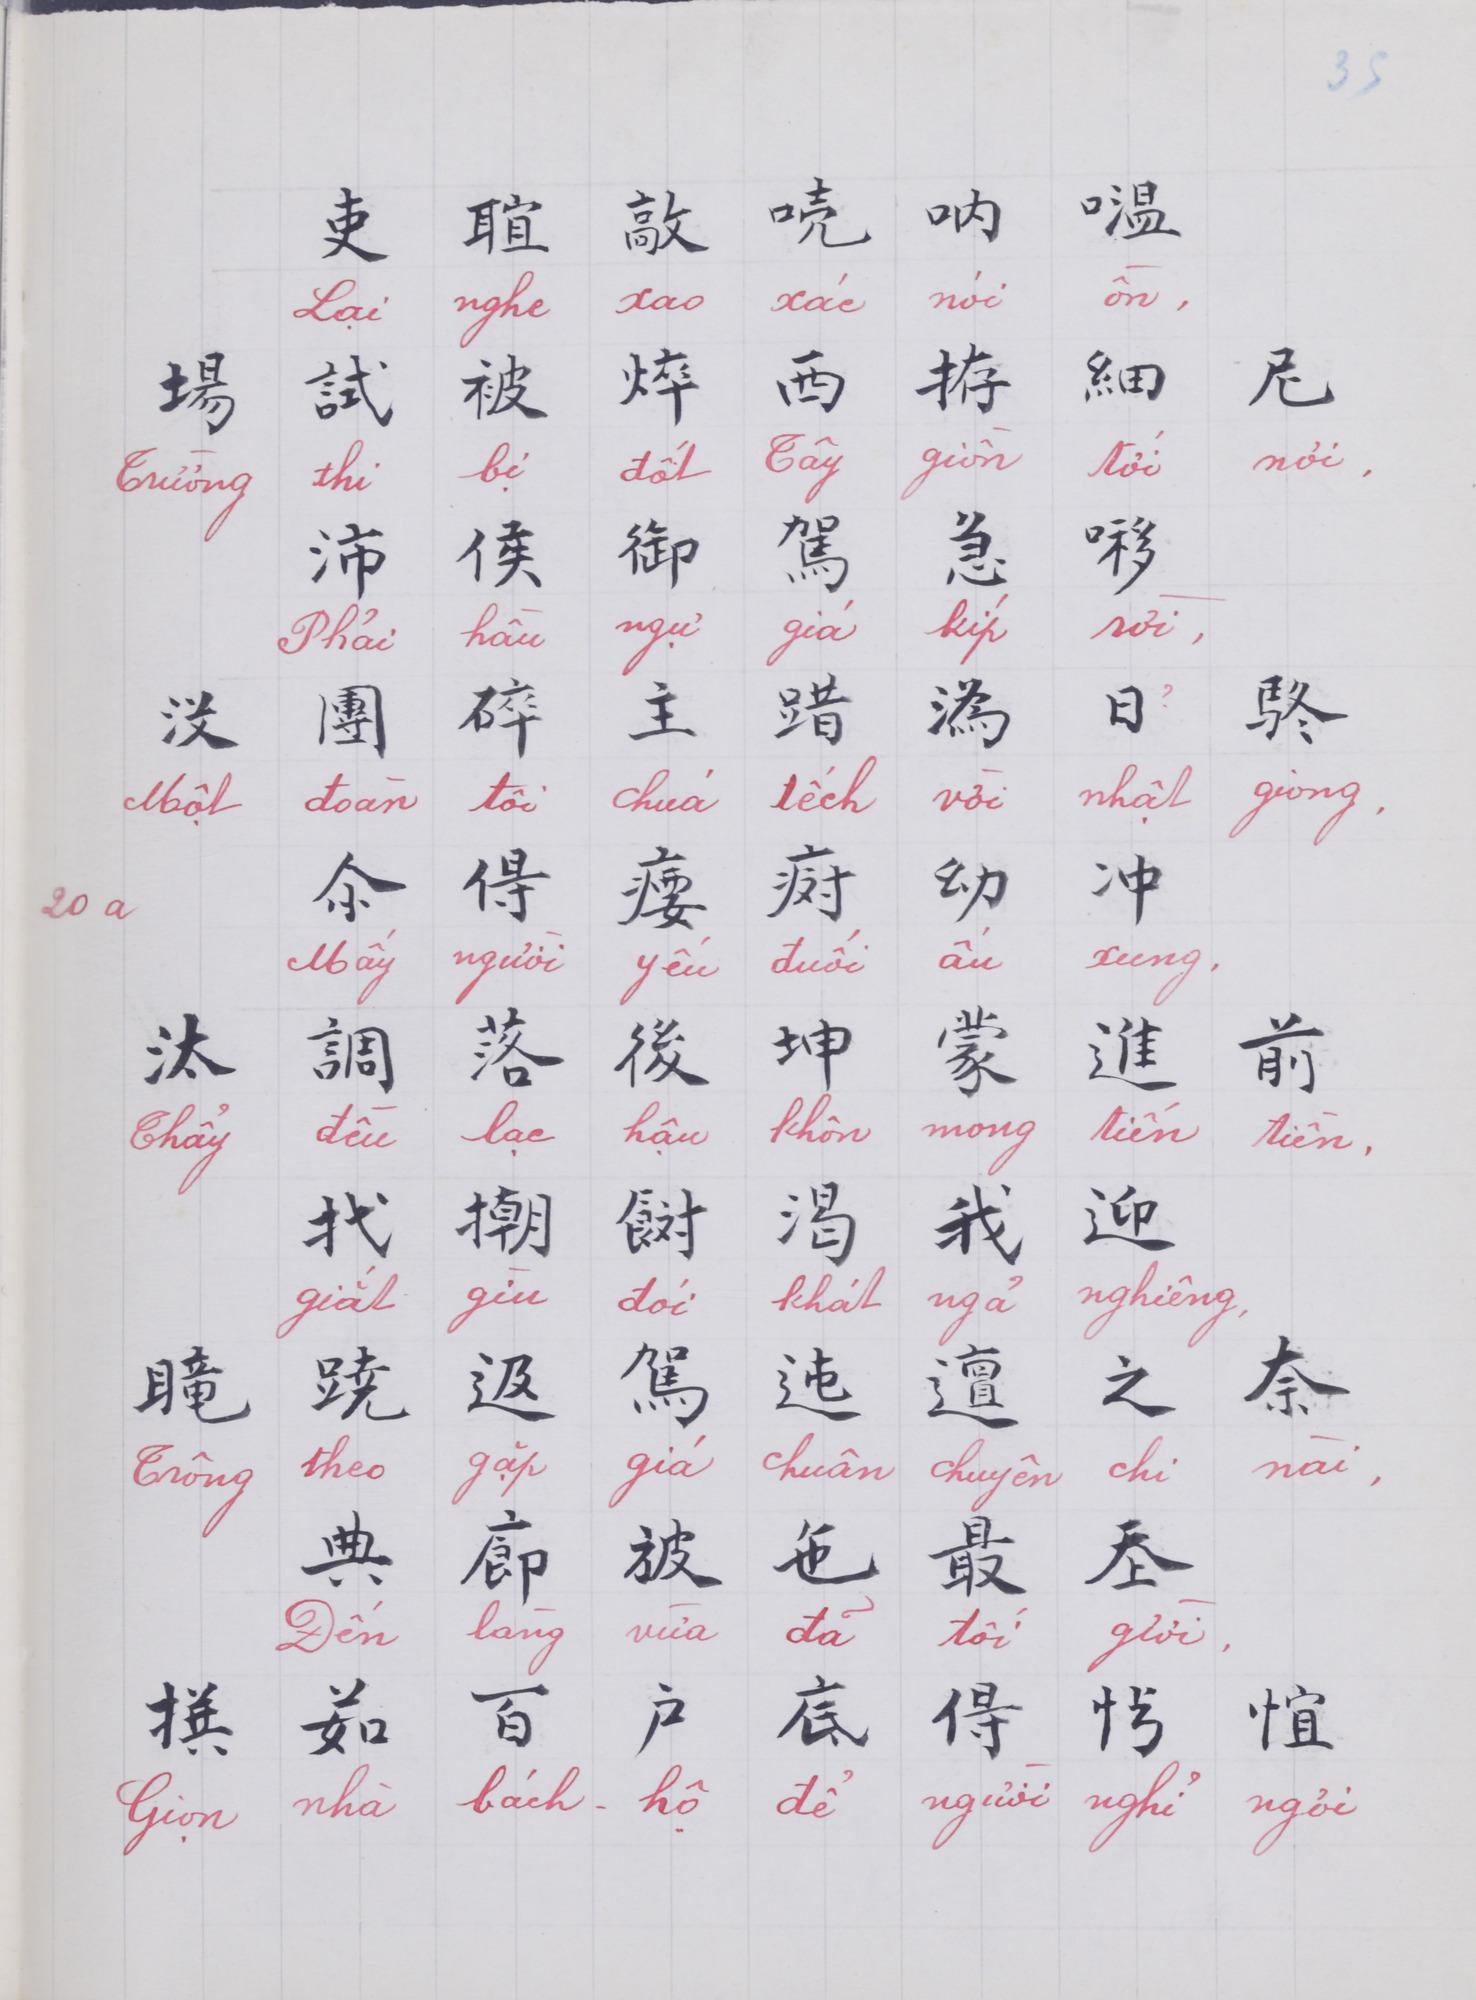 35
吏 聢 敲 哓 吶 嗢
Lại nghe xao xác nói ồn,
場 試 被 焠 西 拵 細 尼
Trường thi bị đốt Tây giồn tới nơi,
沛 侯 御 駕 急
Phải hầu ngự giá kíp rời,
沒 團 碎 主 踖 潙 日
Một đoàn tôi chuá tếch vời nhật giong,
尒 得 㾿 㾄 幼 冲
20a
Mấy người yếu đuối ấu xung,
汰 調 落 後 坤 蒙 進 前
Thẩy đều lạc hậu khôn mong tiến tiền,
找 𢷮 渴 我 迎
giắt gìu đói khát ngả nghiêng,
曨 蹺 返 駕 迍 邅 之 奈
Trông theo gặp giá chuân chuyên chi nài,
典 廊 被 㐌 最 𡗶
Đến làng vừa đã tối giời,
撰 茹 百 户 底 得 愃
Giọn nhà bách-hộ để người nghỉ ngơi